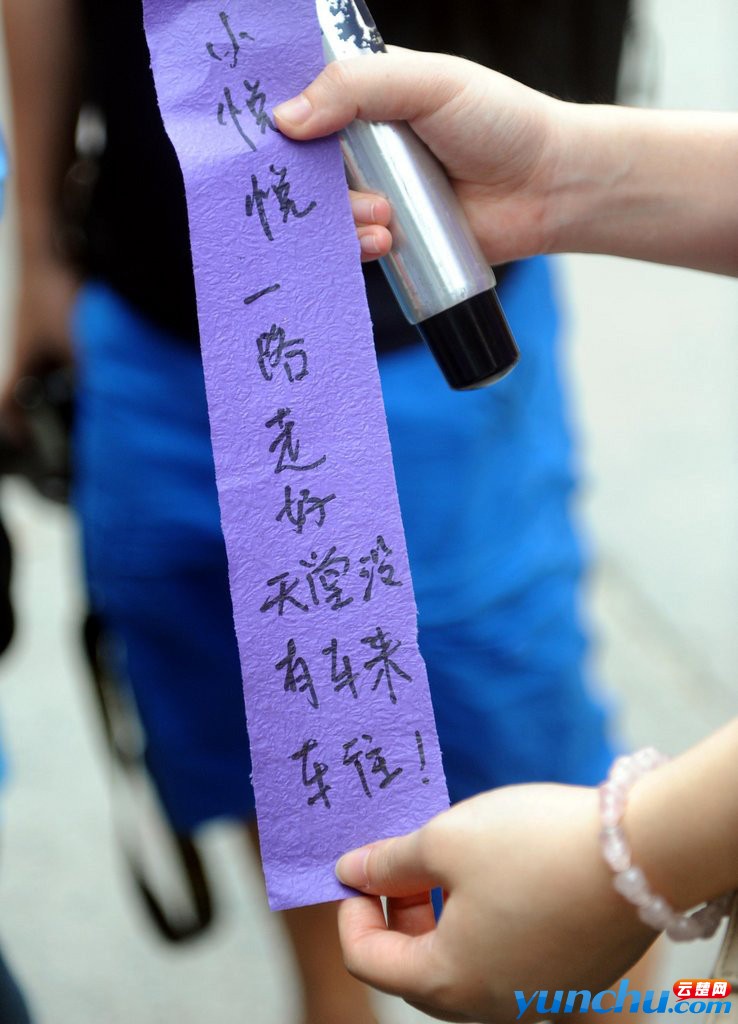 小悦悦一路走好
天堂没
有车来
车往！
云楚网
yunchu.com